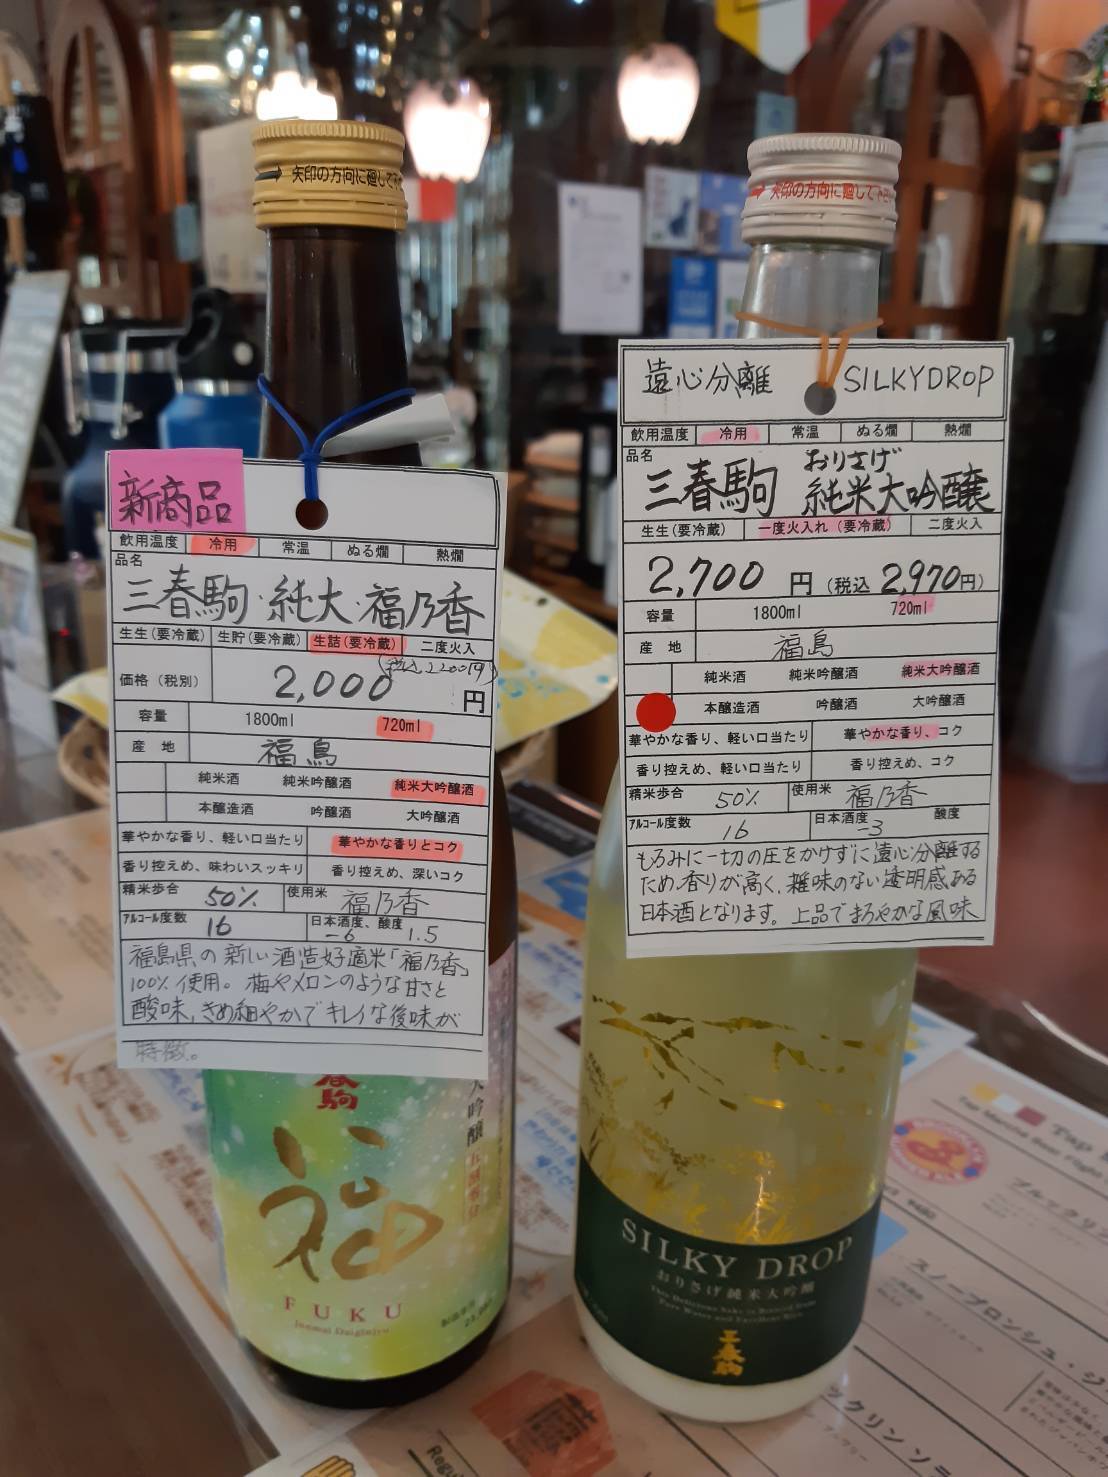 矢印の方向に廻して下さ
矢印の方向に廻して下さい
新商品
飲用温度 冷用 常温 ぬる燗 熱燗
品名
三春駒・純大・福乃香
生生(要冷蔵) 生貯(要冷蔵) 生詰(要冷蔵) 二度火入
(税込2200円)
価格(税別) 2,000 円
容量 1800ml 720ml
産 地 福島
純米酒 純米吟醸酒 純米大吟醸酒
本醸造酒 吟醸酒 大吟醸酒
華やかな香り、軽い口当たり 華やかな香りとコク
香り控えめ、味わいスッキリ 香り控えめ、深いコク
精米歩合 50% 使用米 福乃香
アルコール度数 16 日本酒度、酸度 -6 1.5
福島県の新しい酒造好適米「福乃香」
100%使用。梅やメロンのような甘さと
酸味、きめ細やかでキレイな後味が
特徴。
春駒
大吟醸
福
FUKU
Junmai Daiginjyo
遠心分離 SILKYDROP
飲用温度 冷用 常温 ぬる燗 熱燗
品名
三春駒 おりさげ 純米大吟醸
生生(要冷蔵) 一度火入れ(要冷蔵) 二度火入
2,700 円 (税込 2,970円)
容量 1800ml 720ml
産 地 福島
純米酒 純米吟醸酒 純米大吟醸酒
本醸造酒 吟醸酒 大吟醸酒
華やかな香り、軽い口当たり 華やかな香り、コク
香り控えめ、軽い口当たり 香り控えめ、コク
精米歩合 50% 使用米 福乃香
アルコール度数 16 日本酒度 -3 酸度
もろみに一切の圧をかけずに遠心分離する
ため香りが高く、雑味のない透明感ある
日本酒となります。上品でまろやかな風味
SILKY DROP
おりさげ純米大吟醸
三春駒
Tap
ブルックリン
スノーブロンシュ・
ックリン ソラ
Regu